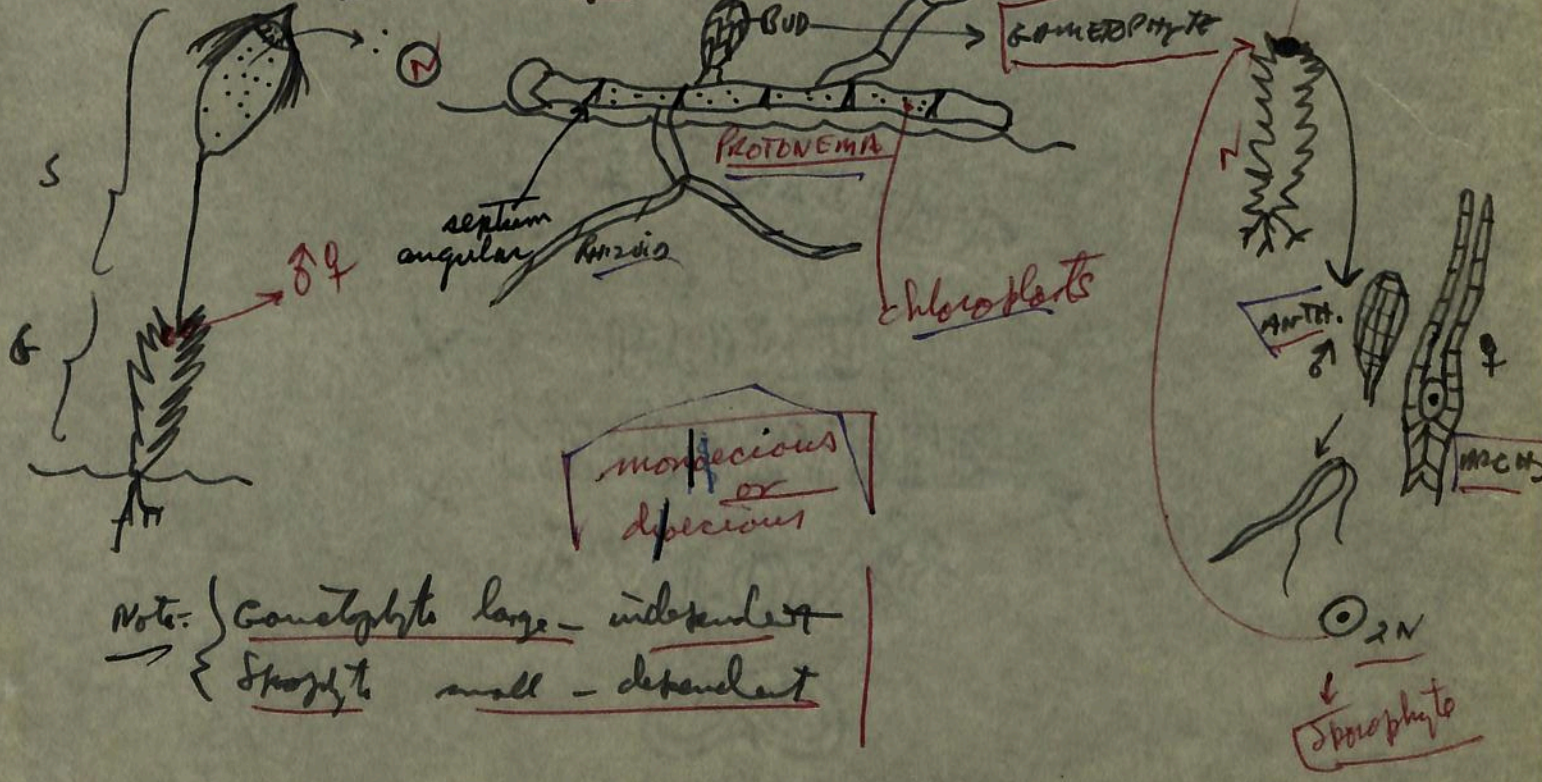 BUD
GAMETOPHYTE
N
PROTONEMA
S
septum
angular
Rhizoid
N
♂♀
chloroplasts
G
ANTH.
♂
♀
ARCH
monoecious
or
dioecious
Note: Gametophyte large - independent
Sporophyte small - dependent
2N
Sporophyte